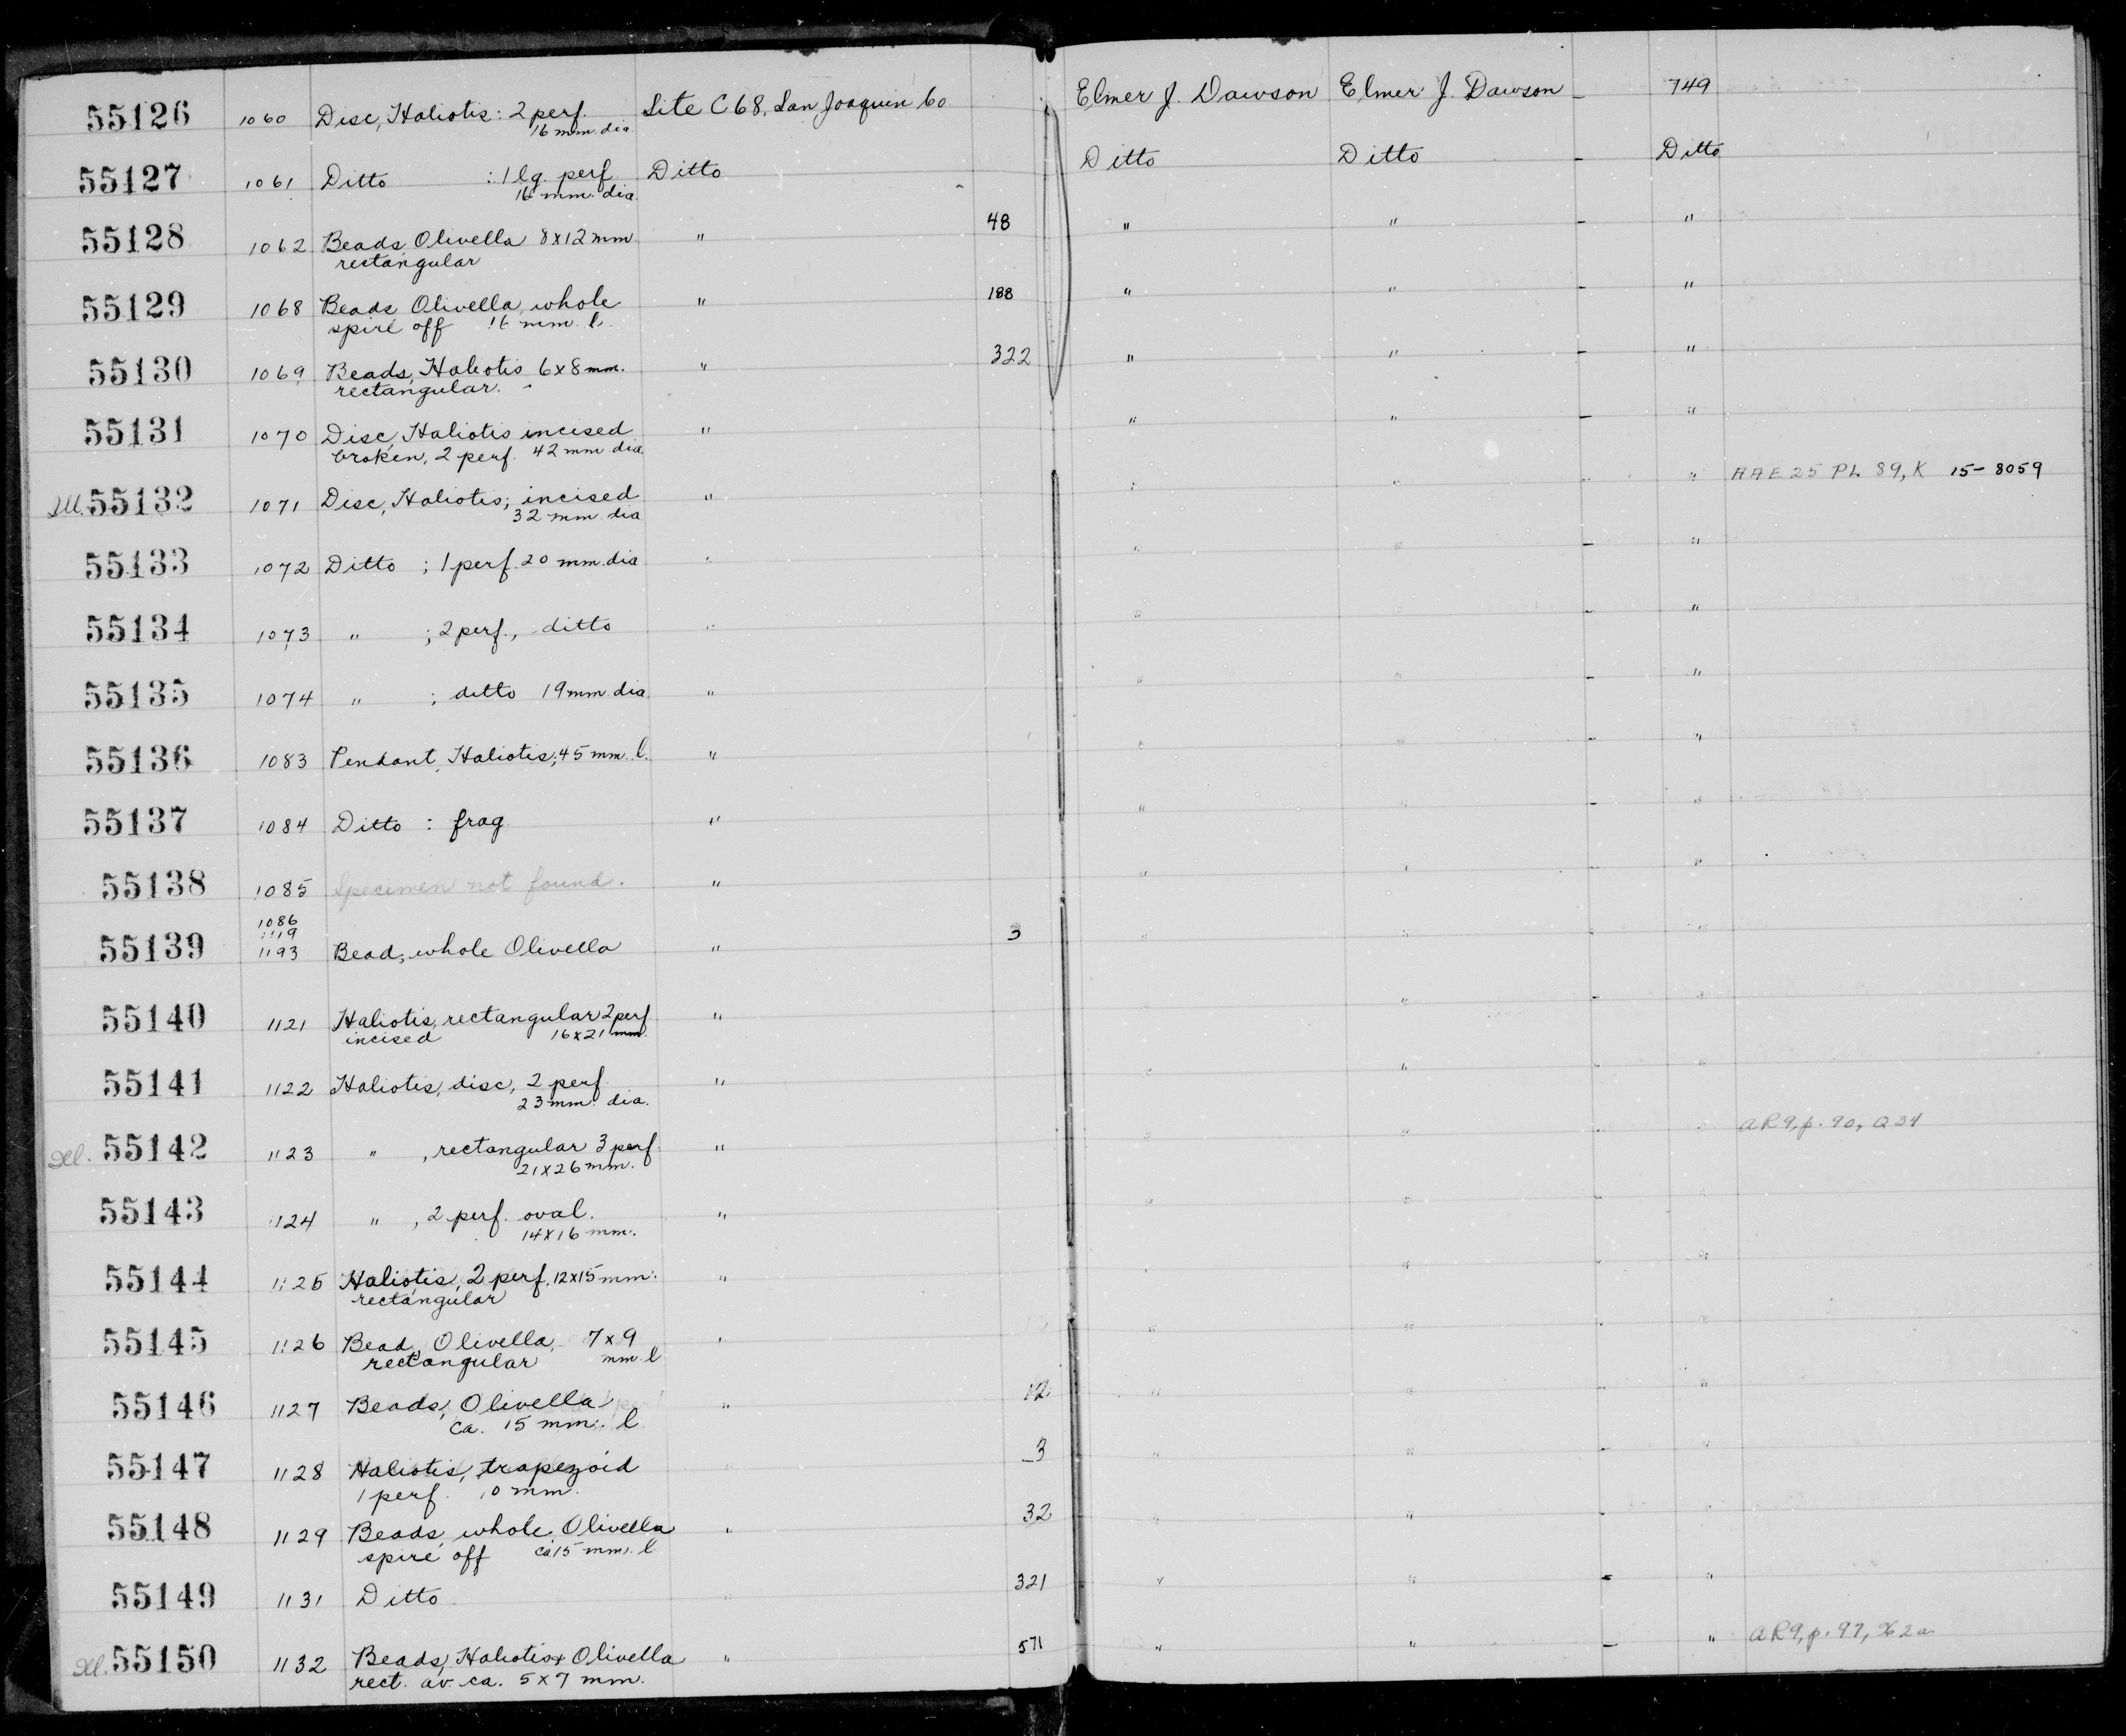 55126 1060 Disc, Haliotis: 2 perf. Site C68, San Joaquin Co Elmer J. Dawson Elmer J. Dawson - 749
16 mm. dia.
55127 1061 Ditto : 1 lg. perf. Ditto Ditto Ditto - Ditto
16 mm. dia.
55128 1062 Beads Olivella 8x12 mm. " 48 " " - "
rectangular
55129 1068 Beads Olivella, whole " 188 " " - "
spire off 16 mm. l.
55130 1069 Beads, Haliotis 6x8 mm. " 322 " " - "
rectangular.
55131 1070 Disc, Haliotis incised " " " - "
broken, 2 perf. 42 mm dia.
Ill. 55132 1071 Disc, Haliotis; incised " " " - " HAE 25 PL 89, K 15-8059
32 mm dia
55133 1072 Ditto ; 1 perf. 20 mm. dia " " " - "
55134 1073 " ; 2 perf., ditto " " " - "
55135 1074 " ; ditto 19 mm. dia. " " " - "
55136 1083 Pendant, Haliotis; 45 mm. l. " " " - "
55137 1084 Ditto : frag. " " " - "
55138 1085 Specimen not found. " " " - "
1086
1119
55139 1193 Bead; whole Olivella " 3 " " - "
55140 1121 Haliotis, rectangular 2 perf " " " - "
incised 16x21 mm.
55141 1122 Haliotis, disc, 2 perf. " " " - "
23 mm. dia.
Ill. 55142 1123 " , rectangular 3 perf. " " " - " AR9, p. 90, Q34
21x26 mm.
55143 1124 " , 2 perf. oval. " " " - "
14x16 mm.
55144 1125 Haliotis, 2 perf. 12x15 mm. " " " - "
rectangular
55145 1126 Bead, Olivella, 7x9 " " " - "
rectangular mm. l
55146 1127 Beads, Olivella " 12 " " - "
ca. 15 mm. l
55147 1128 Haliotis, trapezoid " 3 " " - "
1 perf. 10 mm.
55148 1129 Beads, whole Olivella " 32 " " - "
spire off ca 15 mm. l
55149 1131 Ditto " 321 " " - "
Ill. 55150 1132 Beads, Haliotis + Olivella " 571 " " - " AR9, p. 97, X2a
rect. av. ca. 5x7 mm.